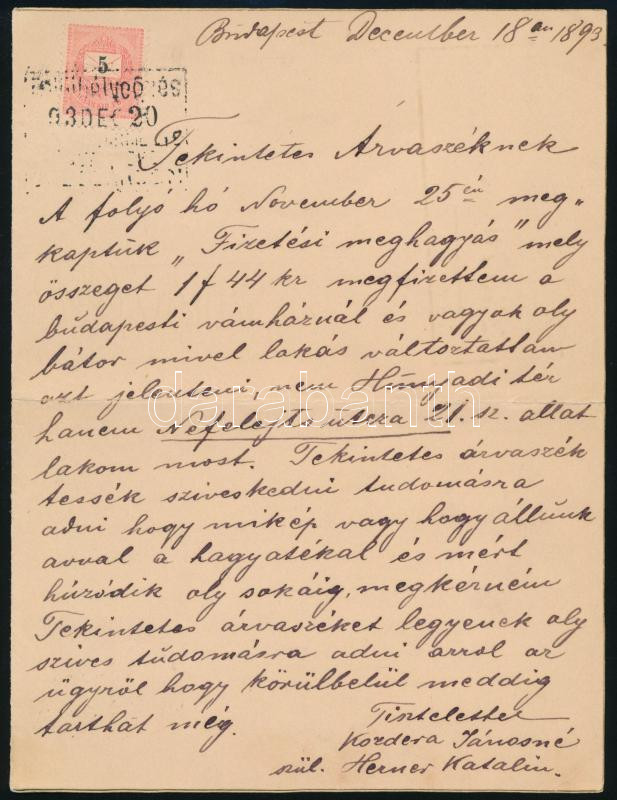 Budapest December 18án 1893
5
93 DEC 20
Tekintetes Árvaszéknek
A folyó hó November 25én meg„
kaptuk „Fizetési meghagyás" mely
összeget 1 f 44 kr megfizettem a
budapesti vámháznál és vagyok oly
bátor mivel lakás változtattam
azt jelenteni, nem Hunyadi tér
hanem Nefelejts utcza 21. sz. allat
lakom most. Tekintetes árvaszék
tessék sziveskedni tudomásra
adni hogy mikép vagy hogy állunk
avval a hagyatékal és mért
húzódik oly sokáig, megkérném
Tekintetes árvaszéket legyenek oly
szives tudomásra adni arrol az
ügyröl hogy körülbelül meddig
tarthat még.
Tisztelettel
Kozdera Jánosné
szül. Herner Katalin.
darabanth